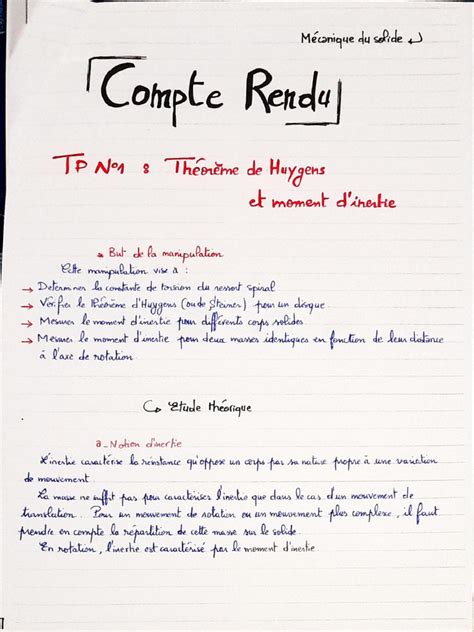 Mécanique du solide
Compte Rendu
TP N°1 : Théorème de Huygens
et moment d'inertie
But de la manipulation
Cette manipulation vise à :
→ Determiner la constante de torsion du ressort spiral
→ Vérifier le théorème d'Huygens (ou de Steiner) pour un disque.
→ Mesurer le moment d'inertie pour différents corps solides.
→ Mesurer le moment d'inertie pour deux masses identiques en fonction de leur distance
à l'axe de rotation.
Etude théorique
a_Notion d'inertie
L'inertie caractérise la résistance qu'oppose un corps par sa nature propre à une variation
de mouvement.
La masse ne suffit pas pour caractériser l'inertie que dans le cas d'un mouvement de
translation. Pour un mouvement de rotation ou un mouvement plus complexe, il faut
prendre en compte la répartition de cette masse sur le solide.
En rotation, l'inertie est caractérisé par le moment d'inertie.